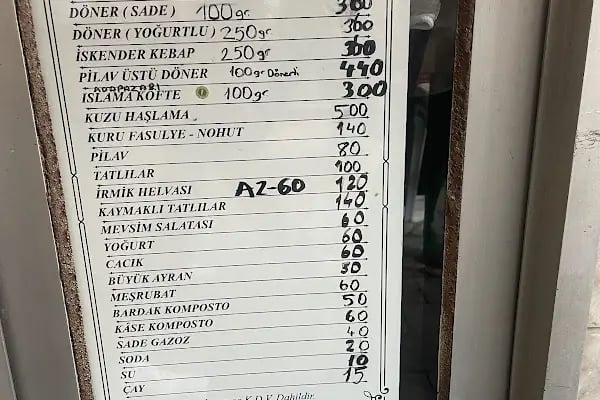 DÖNER ( SADE ) 100gr 360
DÖNER ( YOĞURTLU ) 250gr 360
İSKENDER KEBAP 250gr 360
PİLAV ÜSTÜ DÖNER 100gr Dönerli 440
ADAPAZARI
ISLAMA KÖFTE 100gr 300
KUZU HAŞLAMA 500
KURU FASULYE - NOHUT 140
PİLAV 80
TATLILAR 100
İRMİK HELVASI AZ-60 120
KAYMAKLI TATLILAR 140
MEVSİM SALATASI 60
YOĞURT 60
CACIK 60
BÜYÜK AYRAN 30
MEŞRUBAT 60
BARDAK KOMPOSTO 50
KÂSE KOMPOSTO 60
SADE GAZOZ 40
SODA 20
SU 10
ÇAY 15
K.D.V. Dahildir.